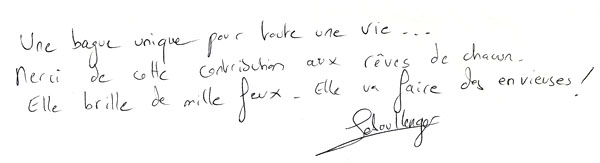 Une bague unique pour toute une vie...
Merci de cette contribution aux rêves de chacun.
Elle brille de mille feux. Elle va faire des envieuses !